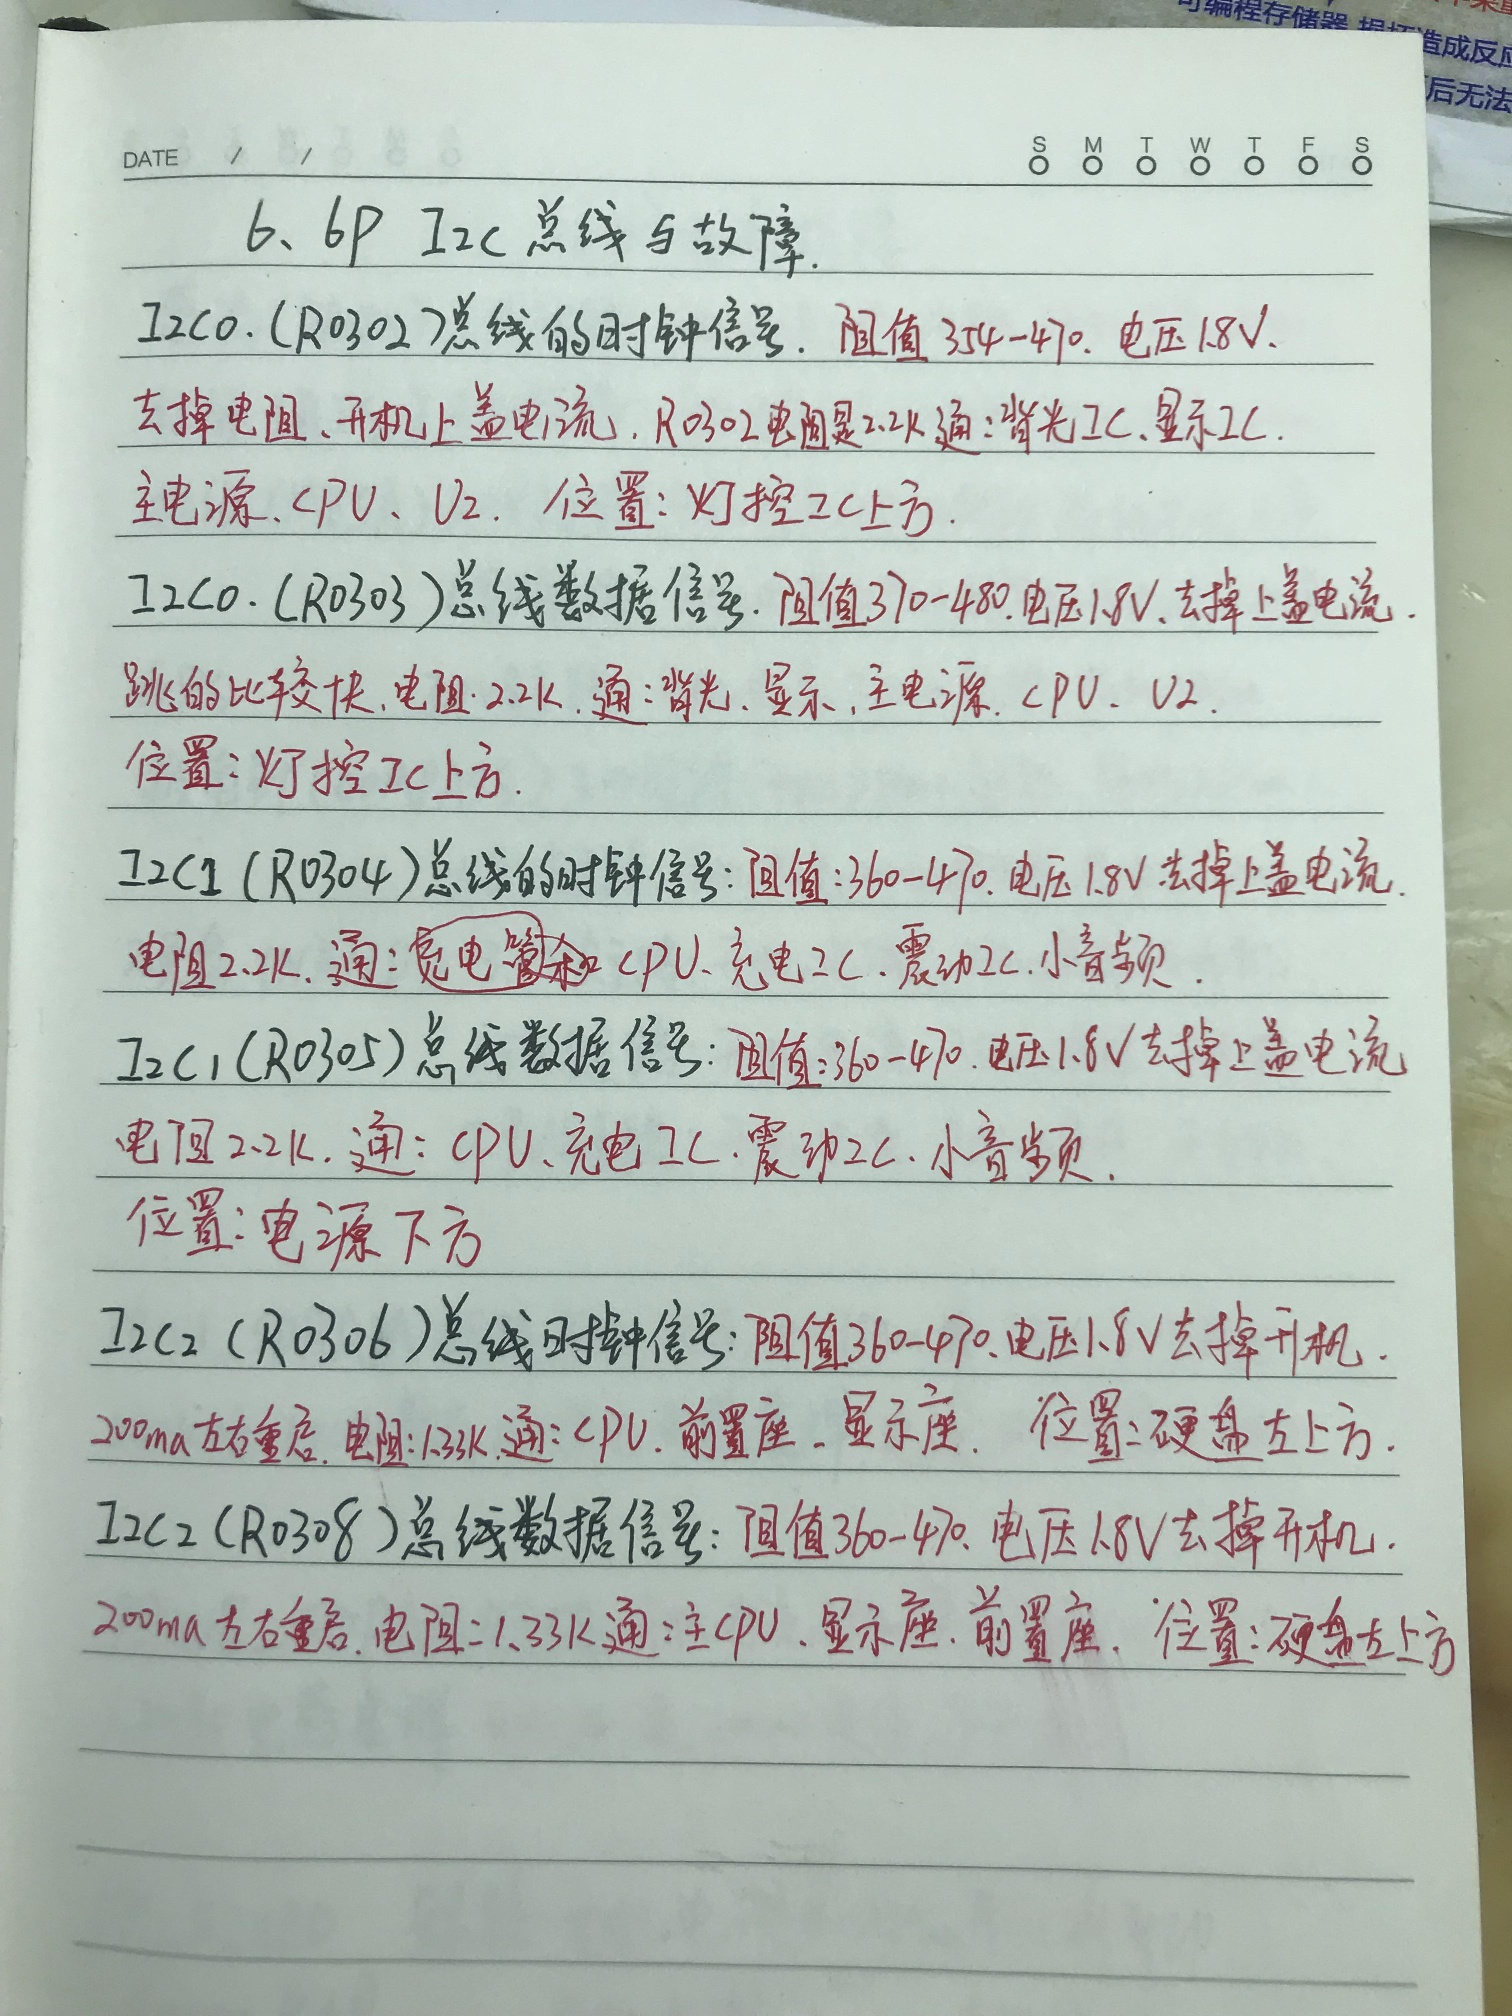 可编程存储器 损坏造成反应
后无法
DATE / / S M T W T F S
6、6P I2C 总线与故障.
I2C0.(R0302)总线的时钟信号. 阻值354-470. 电压1.8V.
去掉电阻、开机上盖电流. R0302电阻是2.2K 通:背光IC、显示IC.
主电源、CPU、U2. 位置:灯控IC上方.
I2C0.(R0303)总线数据信号. 阻值370-480.电压1.8V.去掉上盖电流.
跳的比较快、电阻.2.2K.通:背光、显示、主电源. CPU、U2.
位置:灯控IC上方.
I2C1(R0304)总线的时钟信号:阻值:360-470.电压1.8V去掉上盖电流.
电阻2.2K.通:充电管和CPU、充电IC.震动IC.小音频.
I2C1(R0305)总线数据信号:阻值:360-470.电压1.8V去掉上盖电流
电阻2.2K.通:CPU、充电IC.震动IC.小音频.
位置:电源下方
I2C2(R0306)总线时钟信号:阻值360-470、电压1.8V去掉开机.
200ma左右重启.电阻:1.33K.通:CPU.前置座、显示座. 位置:硬盘左上方.
I2C2(R0308)总线数据信号:阻值360-470、电压1.8V去掉开机.
200ma左右重启.电阻:1.33K通:主CPU、显示座.前置座. 位置:硬盘左上方